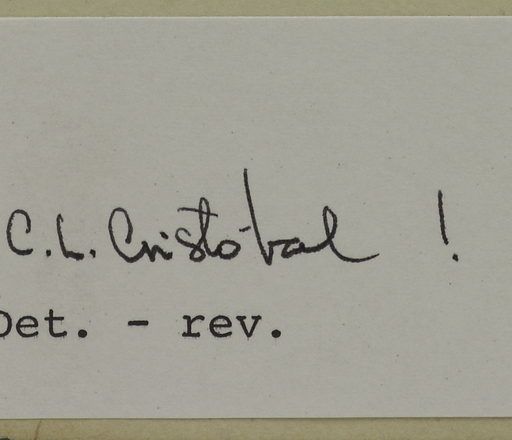 C. L. Cristóbal !
Det. - rev.